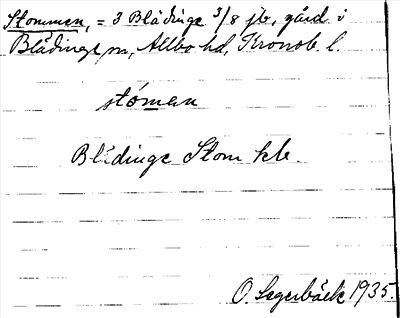 Stommen, = 3 Blädinge 3/8 jb, gård i
Blädinge sn, Allbo hd, Kronob. l.
stóman
Blädinge Stom kb.
O. Segerbäck 1935.